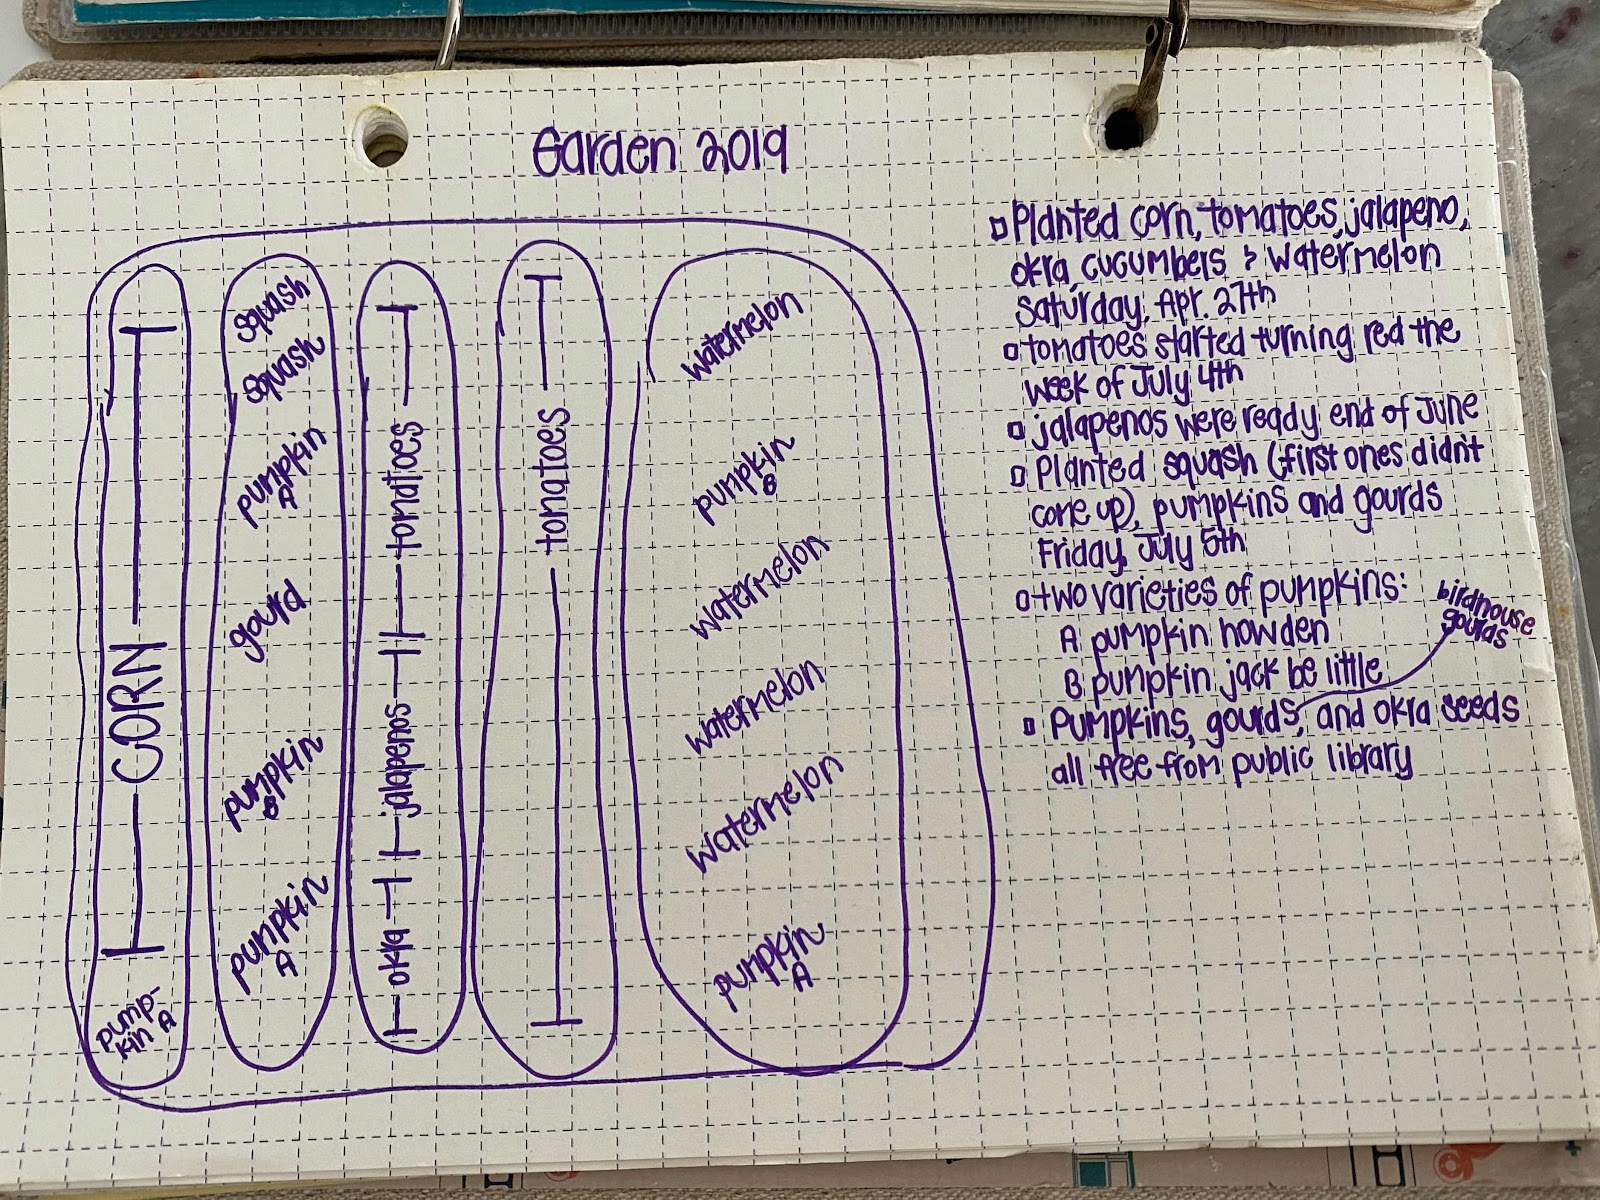 Garden 2019
CORN
pump-
kin A
squash
squash
pumpkin
A
gourd
pumpkin
B
pumpkin
A
tomatoes
jalapenos
okra
tomatoes
watermelon
pumpkin
B
watermelon
watermelon
watermelon
pumpkin
A
Planted corn, tomatoes, jalapeno,
okra, cucumbers & watermelon
Saturday, Apr. 27th
tomatoes started turning red the
week of July 4th
jalapenos were ready end of June
Planted squash (first ones didn't
come up), pumpkins and gourds
Friday, July 5th
two varieties of pumpkins:
A pumpkin howden
B pumpkin jack be little
birdhouse
gourds
Pumpkins, gourds, and okra seeds
all free from public library